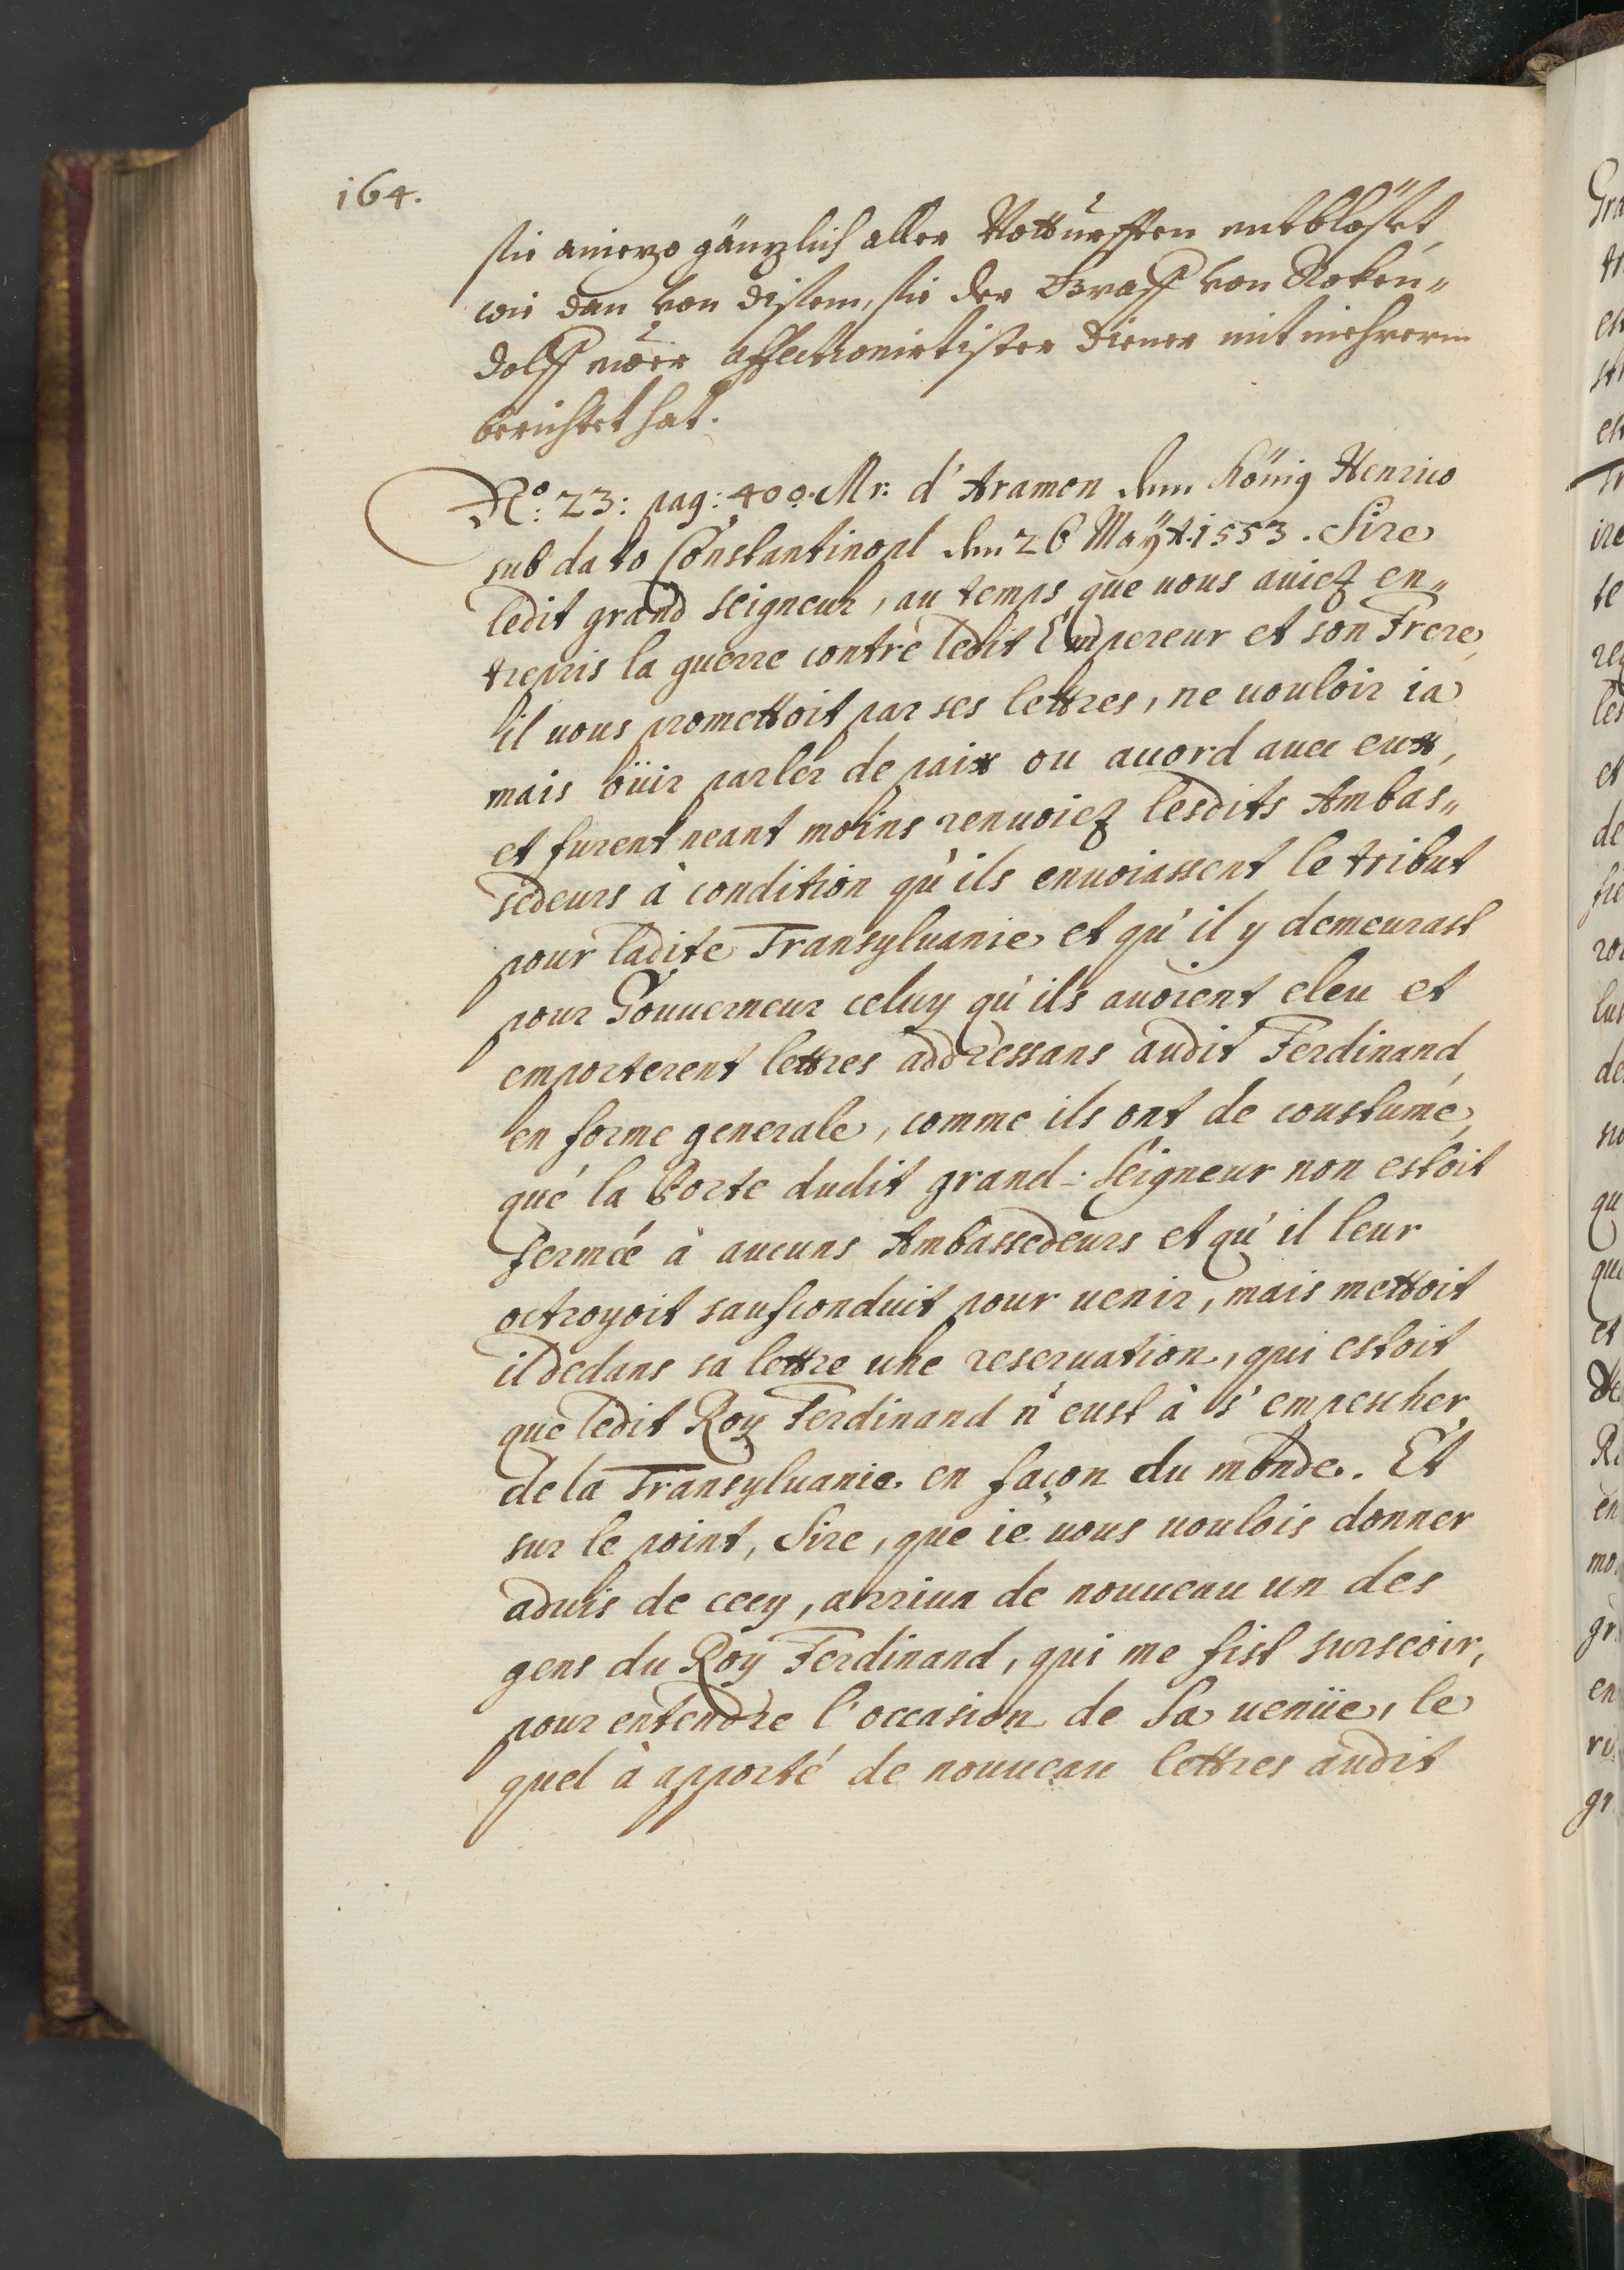 164.
sie aniezo gänzlich aller Notturfften entblöst,
wie dan von disem, sie der Graff von Roken„
dolff euer affectionirtister Diener mit mehrerm
berichtet hat.
No: 23: pag: 400. Mr: d' Aramon dem König Henrico
sub dato Constantinopl den 26 Maÿ A. 1553. Sire
ledit grand seigneur, au temps que uous auiez en„
trepris la guerre contre ledit Empereur et son Frere,
il uous promettoit par ses lettres, ne uouloir ia
mais öüir parler de paix ou acord auec eux,
et furent neant moins renuoiez lesdits Ambas„
sedeurs à condition qu'ils enuoiassent le tribut
pour ladite Transyluanie et qu'il y demeurast
pour Gouuerneur celuy qu'ils auoient eleu et
emporterent lettres addressans audit Ferdinand,
en forme generale, comme ils ont de coustume,
que la Porte dudit grand-Seigneur non estoit
fermée à aucuns Ambassedeurs et qu'il leur
octroyoit saufconduit pour uenir, mais mettoit
il dedans sa lettre une reseruation, qui estoit
que ledit Roy Ferdinand n'eust à s'empescher
de la Transyluanie en façon du monde. Et
sur le point, Sire, que ie uous uoulois donner
aduis de cecy, arriua de nouueau un des
gens du Roy Ferdinand, qui me fist surseoir,
pour entendre l'occasion de Sa uenüe, le
quel à apporté de nouueau lettres audit